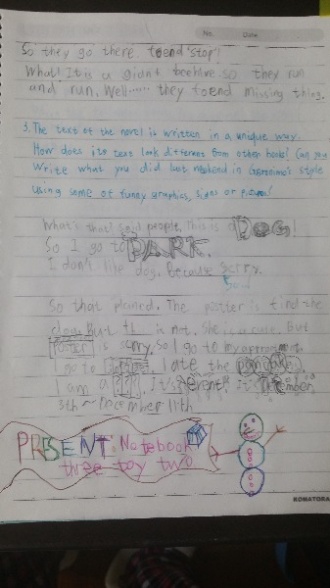 No. Date
So they go there. toend 'stop'!
What! It is a giant beehive. so they run
and run. Well...... they toend missing thing.
3. The text of the novel is written in a unique way.
How does its text look different from other books? Can you
write what you did last weekend in Geronimo's style
using some of funny graphics, signs or
What's that! said people. This is a DOG!
So I go to PARK.
I don't like dog. Because scrry.
So
So that planed. The patter is find the
dog. But is not. She is a cute. But
is scrry. So I go to my
I go to I ate the
I am a It's event! It December
5th ~ December 11th
PRESENT. Notebook
three toy two